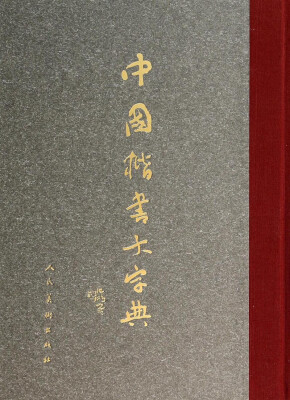 中国楷書大字典
人民美術出版社